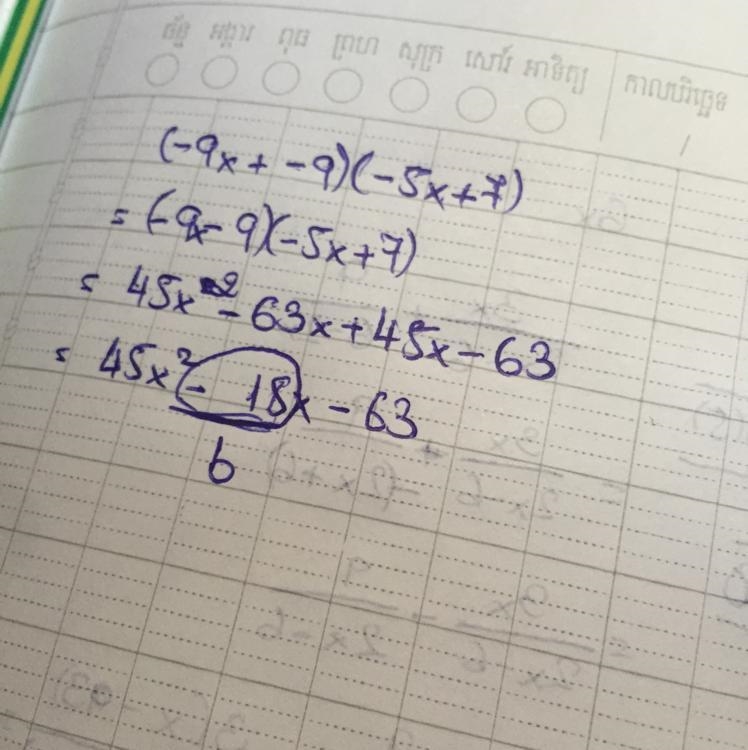 ច័ន្ទ អង្គារ ពុធ ព្រហ សុក្រ សៅរ៍ អាទិត្យ កាលបរិច្ឆេទ
(-9x + -9)(-5x+7)
= (-9x - 9)(-5x+7)
= 45x² - 63x + 45x - 63
= 45x² - 18x - 63
b